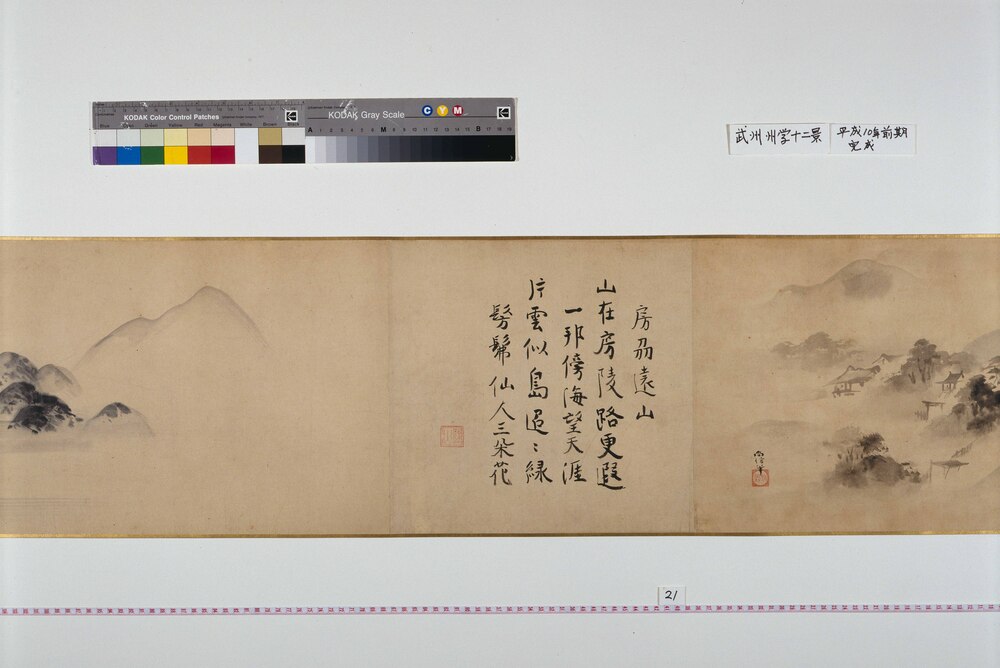 KODAK Color Control Patches
Blue Cyan Green Yellow Red Magenta White Black
KODAK Gray Scale
C Y M
A 1 2 3 4 5 6 M 8 9 10 11 12 13 14 15 B 17 18 19
武州州学十二景
平成10年前期
完成
房刕遠山
山在房陵路更遐
一邦傍海望天涯
片雲似島迢〻緑
髣髴仙人三朶花
21